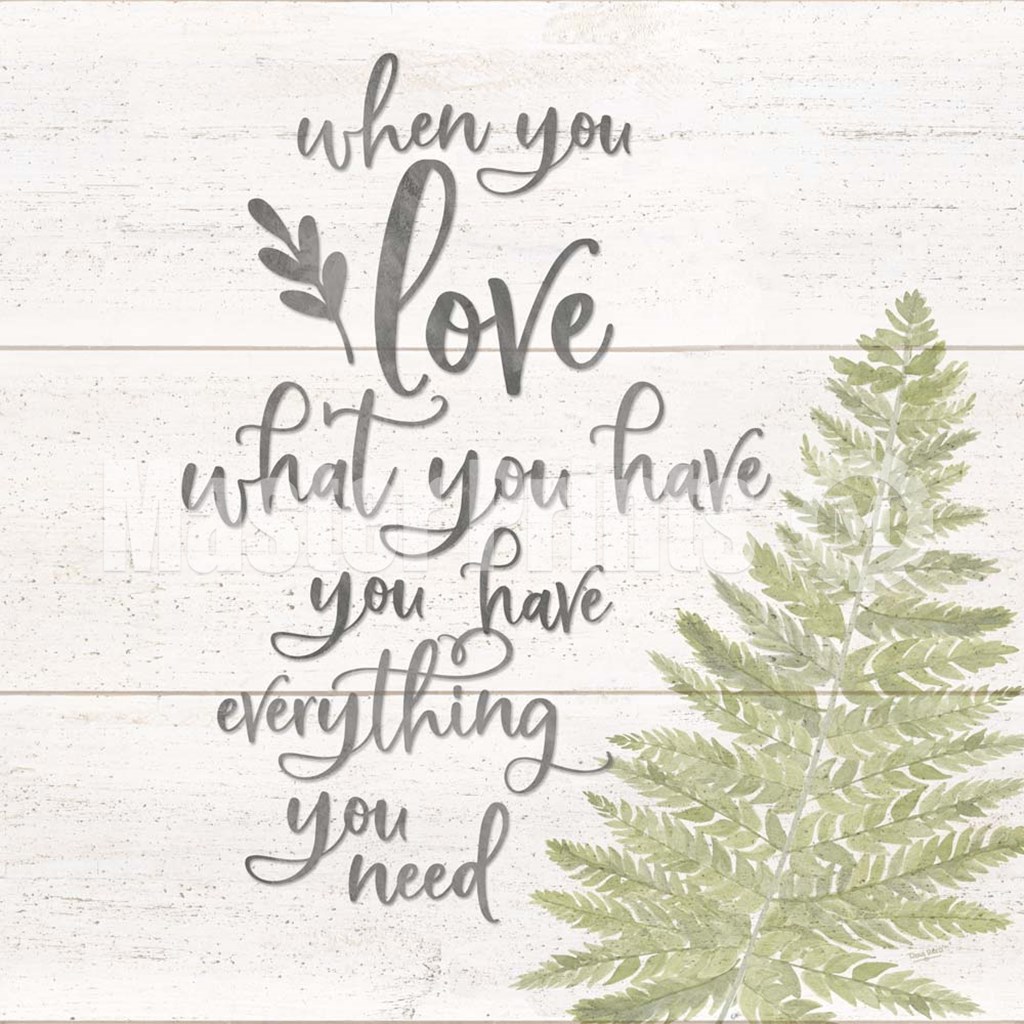 when you
love
what you have
MasterPrints
you have
everything
you
need